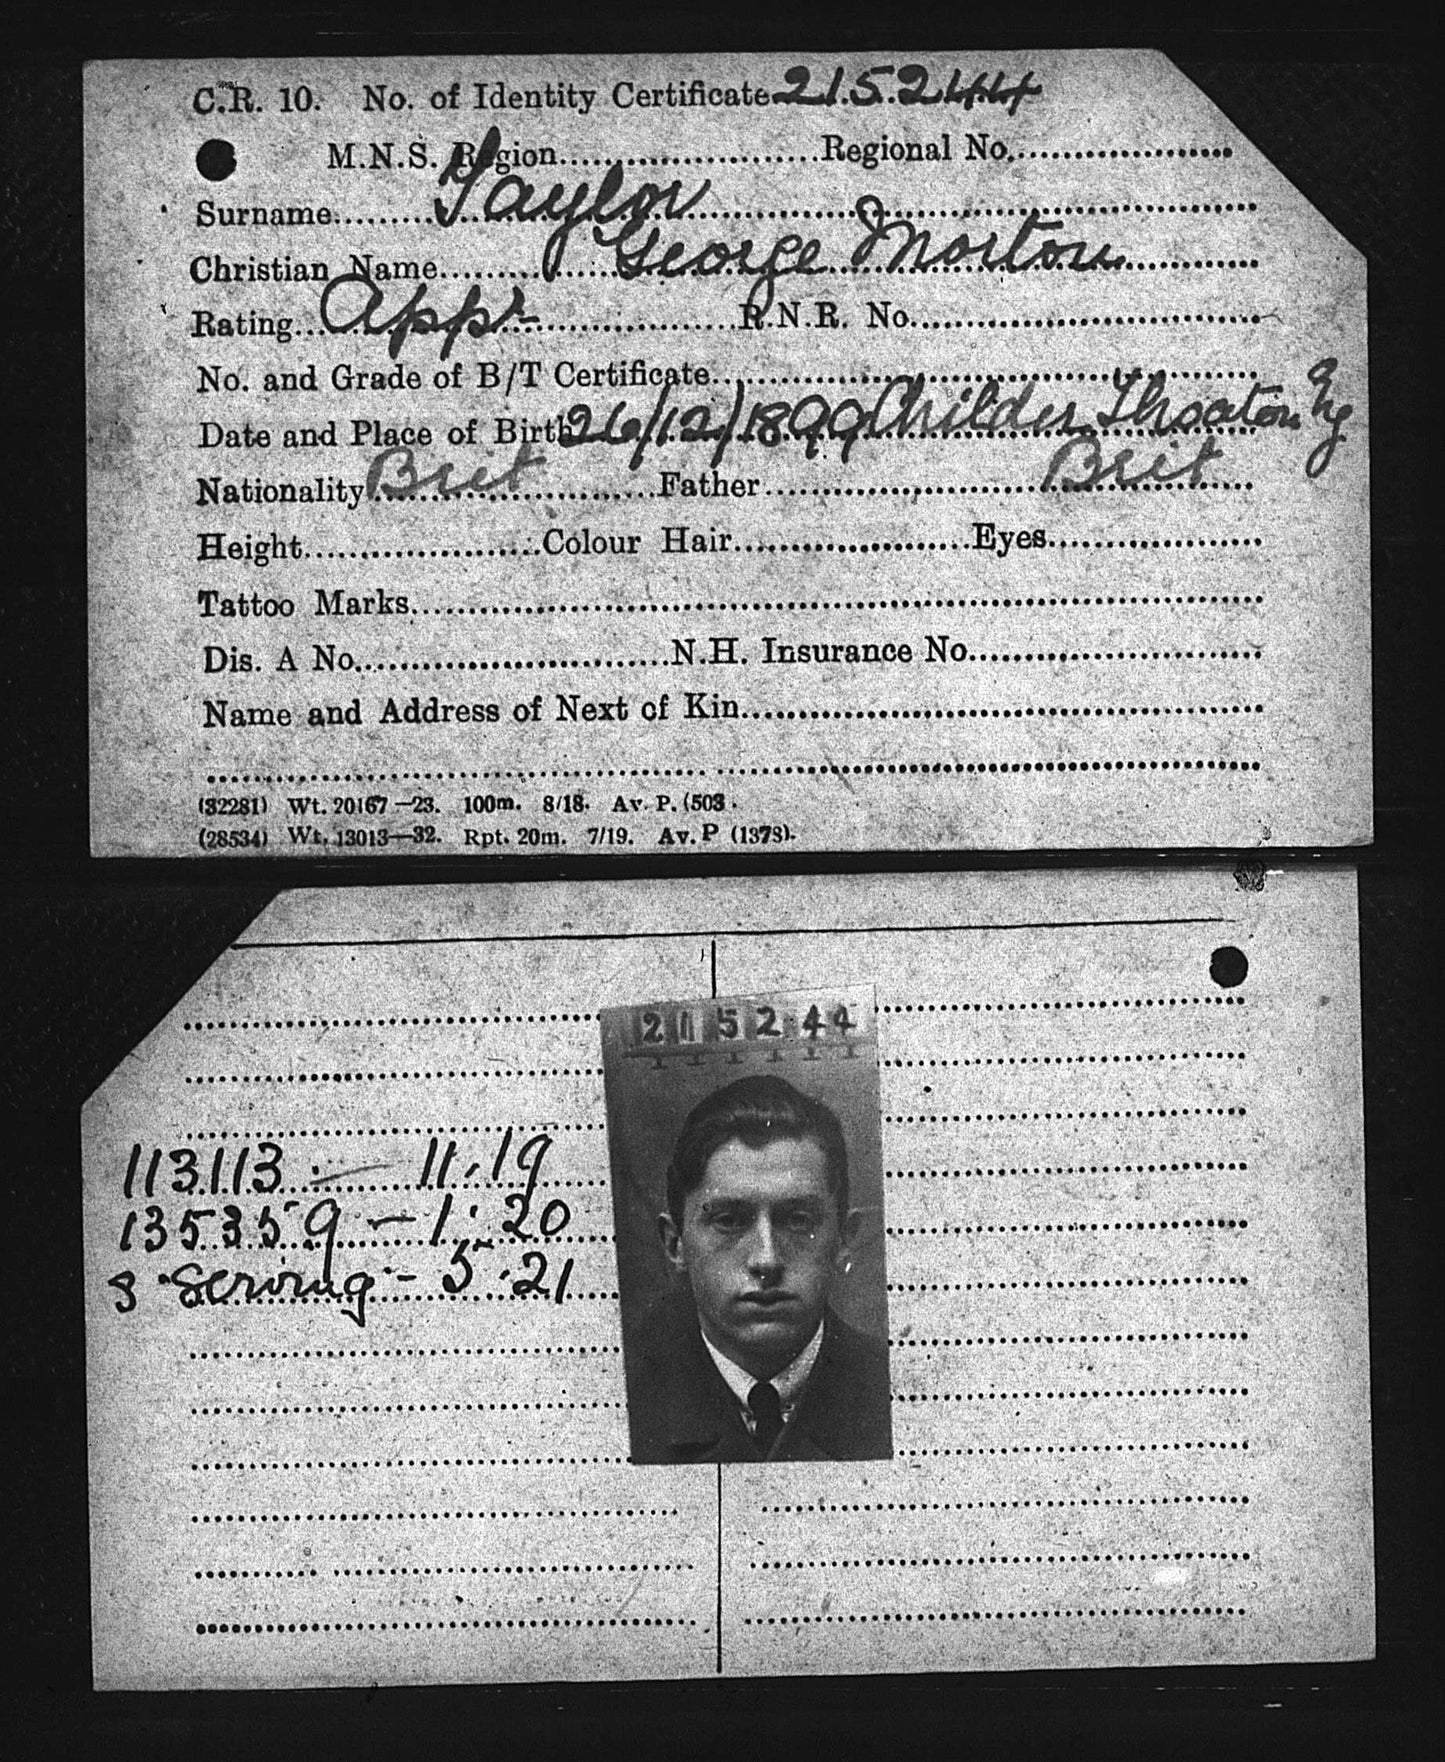 C.R. 10. No. of Identity Certificate 215244
M.N.S. Region Regional No.
Surname Taylor
Christian Name George Morton
Rating Appr R.N.R. No.
No. and Grade of B/T Certificate
Date and Place of Birth 26/12/1899 Childer Thoaton Eng
Nationality Brit Father Brit
Height Colour Hair Eyes
Tattoo Marks
Dis. A No. N.H. Insurance No.
Name and Address of Next of Kin
(32281) Wt. 20167—23. 100m. 8/18. Av. P. (503.
(28534) Wt. 13013—32. Rpt. 20m. 7/19. Av. P (1373).
215244
113113 — 11.19
135359 — 1.20
S. Serving - 5.21